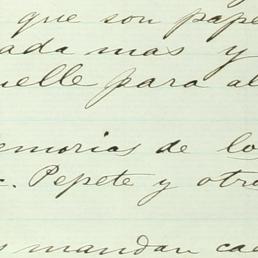 que son pape
ada mas y
uelle para al
emorias de lo
Pepete y otro
s mandan cae